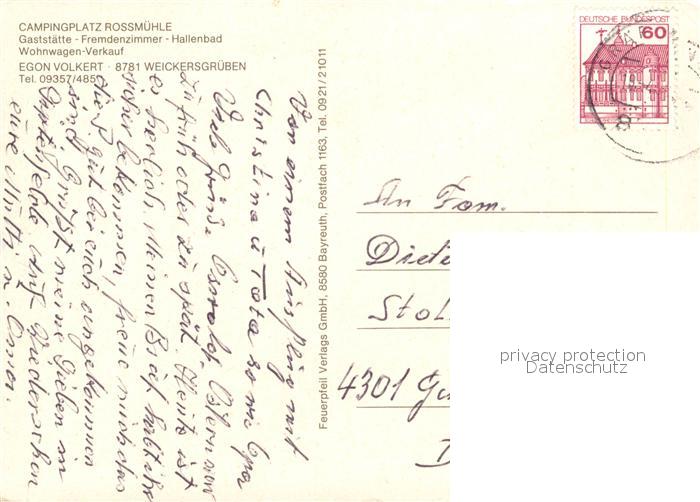 CAMPINGPLATZ ROSSMÜHLE
Gaststätte - Fremdenzimmer - Hallenbad
Wohnwagen-Verkauf
EGON VOLKERT · 8781 WEICKERSGRÜBEN
Tel. 09357/485
DEUTSCHE BUNDESPOST
60
Feuerpfeil Verlags GmbH, 8580 Bayreuth, Postfach 1163, Tel. 0921/21011
Von einem Ausflug mit
Christina u Tata sowie Opa
Viele Grüße. Ostern war
zu früh oder zu spät. Heute ist
es herrlich. Meinen Brief
sicher bekommen, freue mich das
die gut bei euch angekommen
sind. Grüßt meine Lieben in
auf Wiedersehen
eure Mutti u. Omi.
An Fam.
Diet
Stol
4301
privacy protection
Datenschutz